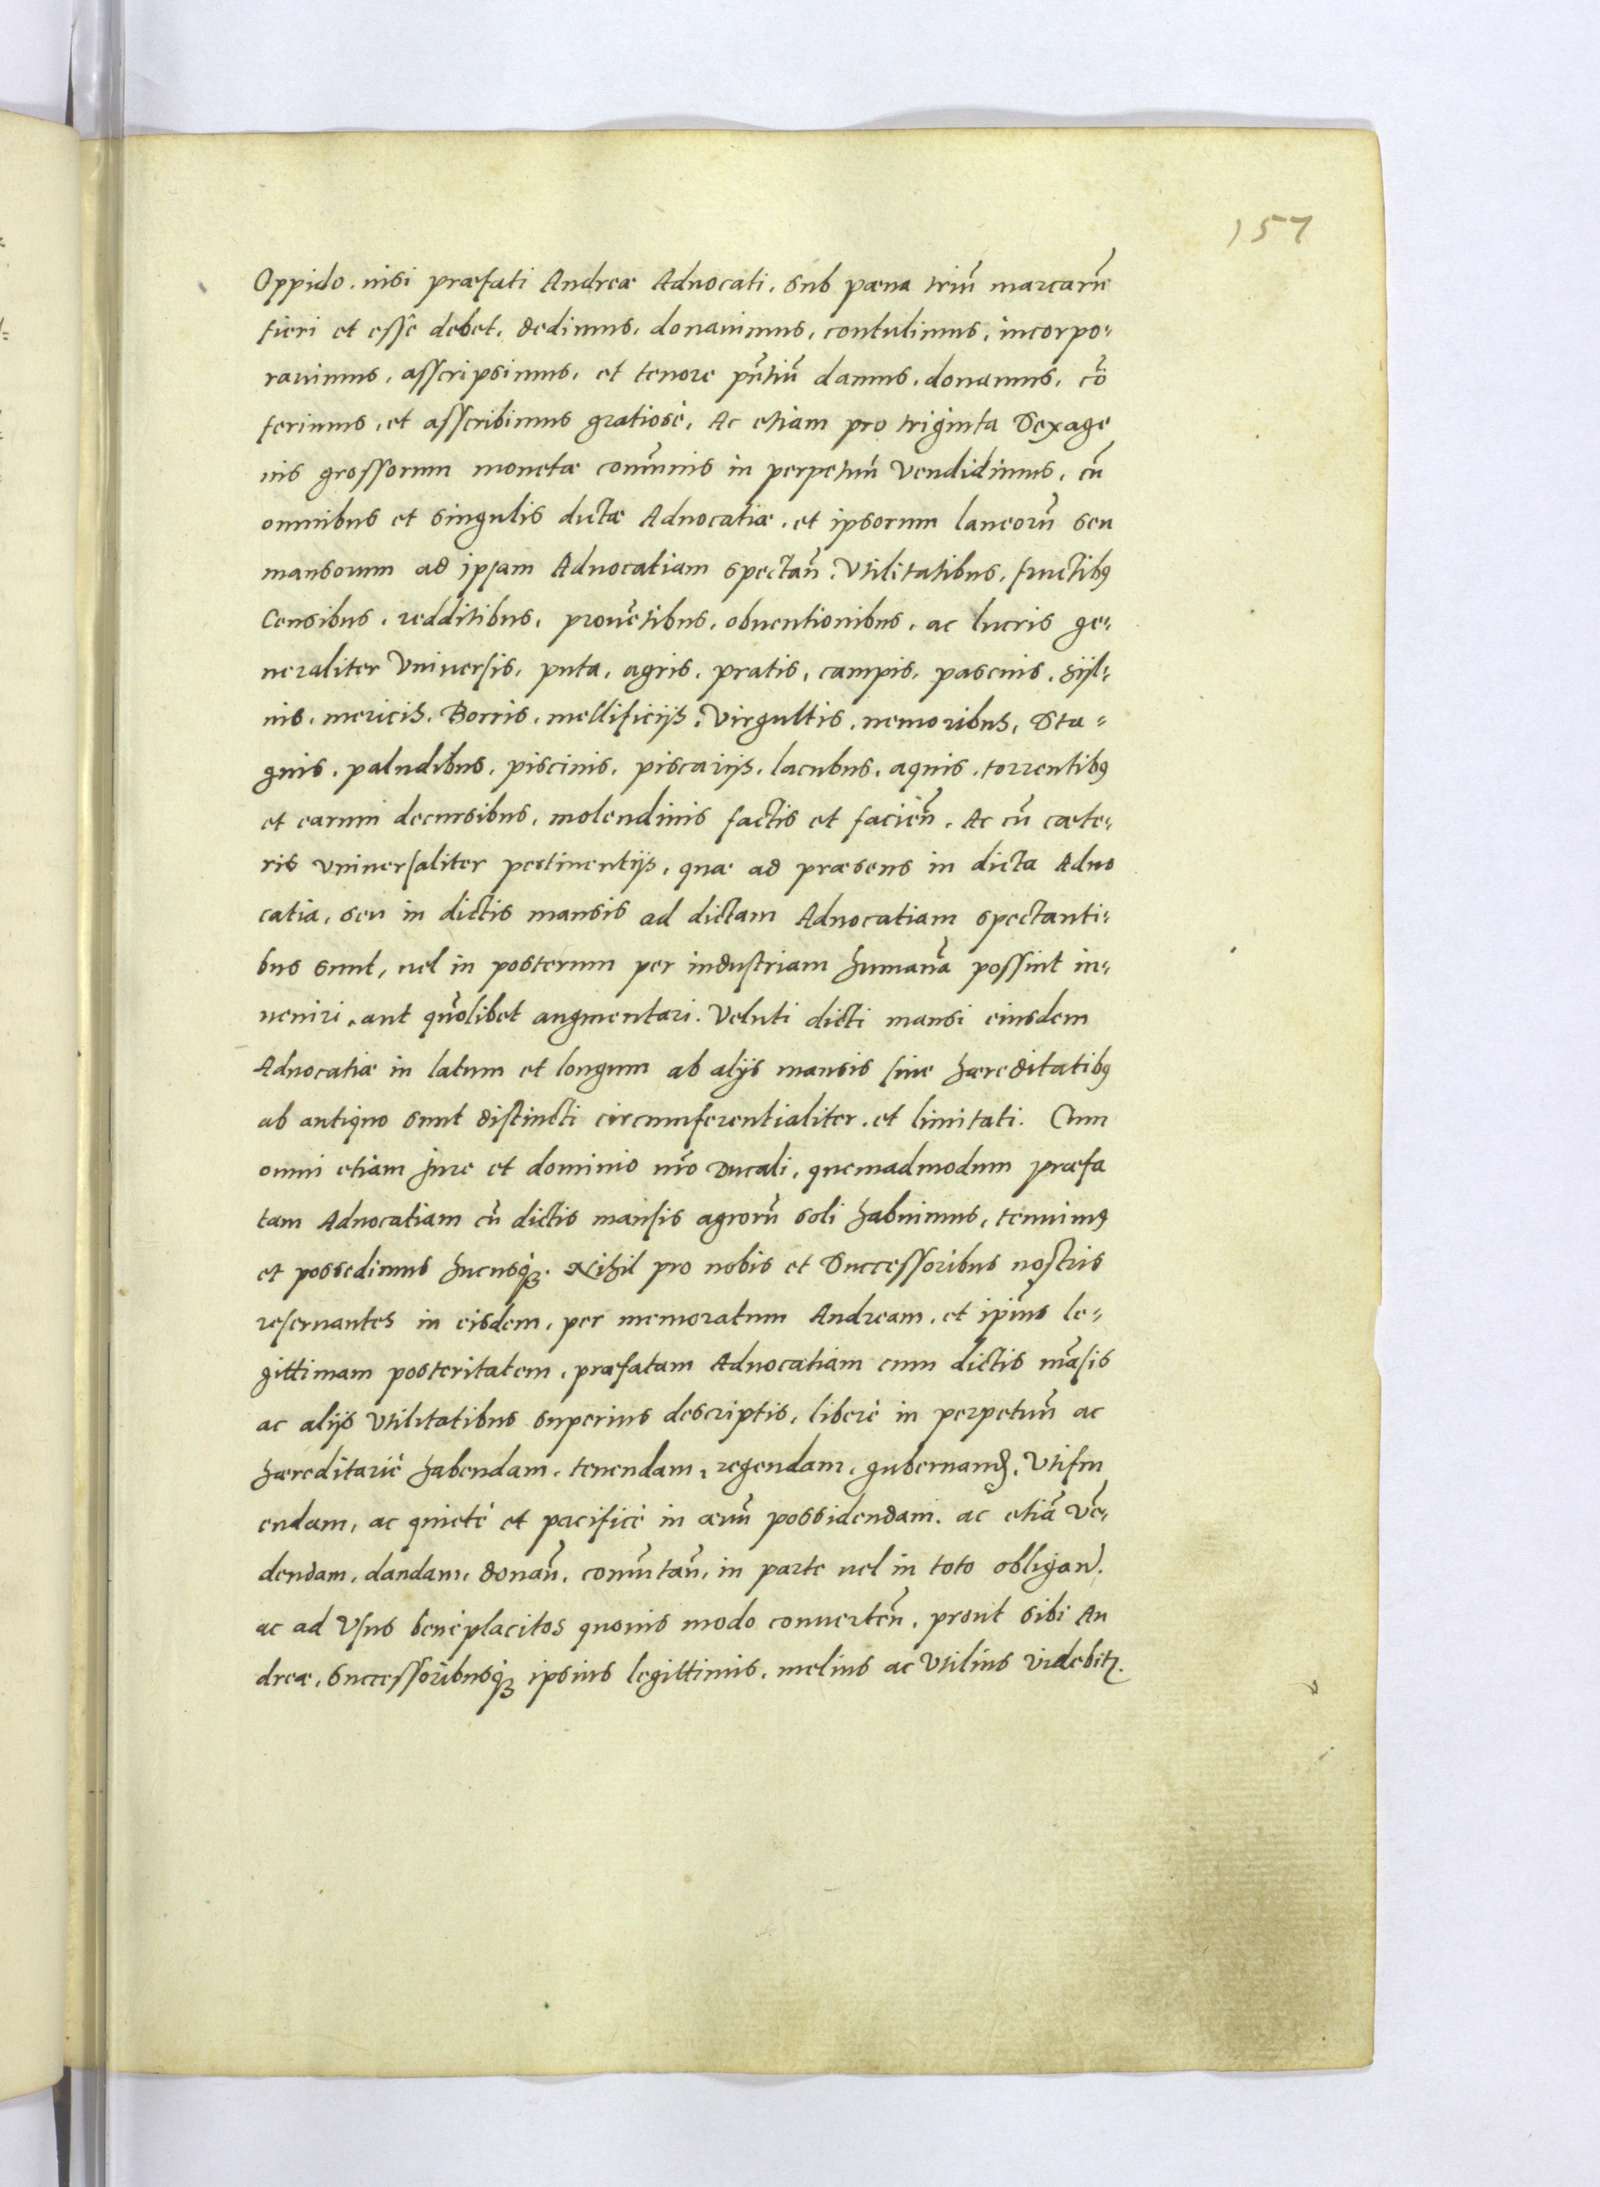 157
Oppido. nisi præfati Andreæ Aduocati. sub pæna triũ marcarũ
fieri et esse debet. dedimus. donauimus, contulimus, incorpo=
rauimus, asscripsimus, et tenore pñtiũ damus, donamus, cõ
ferimus, et asscribimus gratiosè. Ac etiam pro triginta Sexage
nis grossorum monetæ com̃unis in perpetuũ Vendidimus, cũ
omnibus et singulis dictæ Aduocatiæ. et ipsorum laneorũ seu
mansorum ad ipsam Aduocatiam spectañ. Vtilitatibus, fructibꝰ
Censibus. redditibus. prouẽtibus. obuentionibus, ac lucris ge=
neraliter Vniuersis, puta, agris. pratis, campis, pascuis. syl=
uis. mericis. Borris. mellificijs. Virgultis. nemoribus, Sta=
gnis. paludibus. piscinis. piscarijs. lacubus. aquis. torrentibꝰ
et earum decursibus. molendinis factis et facieñ. Ac cũ cæte=
ris vniuersaliter pertinentijs, quæ ad præsens in dicta Aduo
catia. seu in dictis mansis ad dictam Aduocatiam spectanti=
bus sunt, uel in posterum per industriam humanã possint in=
ueniri. aut quõlibet augmentari. Veluti dicti mansi eiusdem
Aduocatiæ in latum et longum ab alijs mansis siue hæreditatibꝰ
ab antiquo sunt distincti circumferentialiter. et limitati. Cum
omni etiam jure et dominio nr̃o Ducali, quemadmodum præfa
tam Aduocatiam cũ dictis mansis agrorũ soli habuimus, tenuimꝰ
et possedimus hucusqꝫ. Nihil pro nobis et Successoribus nostris
reseruantes in eisdem, per memoratum Andream. et ipĩus le=
gittimam posteritatem. præfatam Aduocatiam cum dictis mãsis
ac alijs Vtilitatibus superius descriptis, liberè in perpetuũ ac
hæreditariè habendam. tenendam, regendam, gubernand. Vtifru
endam, ac quietè et pacificè in æuũ possidendam. ac etiã Vẽ=
dendam. dandam. donañ. com̃utañ. in parte uel in toto obligand.
ac ad Vsus beneplacitos quouis modo conuerteñ. prout sibi An
dreæ. Successoribusqꝫ ipsius legittimis. melius ac Vtilius Videbitꝛ.